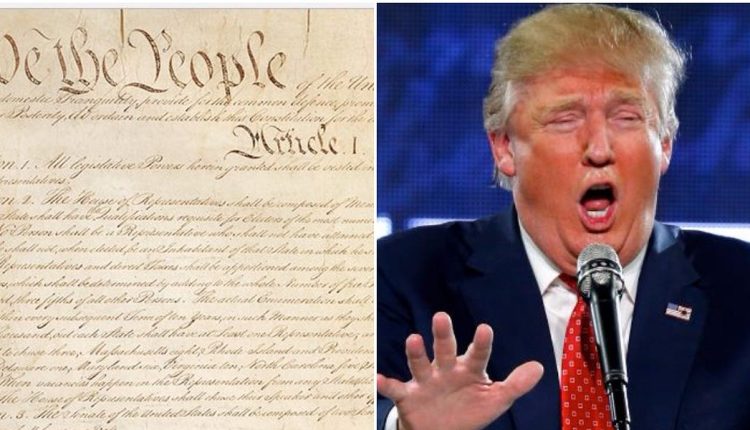 We the People
of the Un
domestic Tranquility, provide for the common defence, prom
Posterity, do ordain and establish this Constitution for the
Article. I.
on. 1. All legislative Powers herein granted shall be vested in
presentatives.
on. 2. The House of Representatives shall be composed of Mem
State shall have Qualifications requisite for Electors of the most nume
No Person shall be a Representative who shall not have attained
shall not, when elected, be an Inhabitant of that State in which he
Representatives and direct Taxes shall be apportioned among the sever
which shall be determined by adding to the whole Number of free
three fifths of all other Persons. The actual Enumeration shall
every subsequent Term of ten Years, in such Manner as they sha
thousand, but each State shall have at Least one Representative; an
to chuse three, Massachusetts eight, Rhode Island and Providence
Maryland six, Virginia ten, North Carolina five
When vacancies happen in the Representation from any State
The House of Representatives shall chuse their Speaker and other
n. 3. The Senate of the United States shall be composed of two Sen